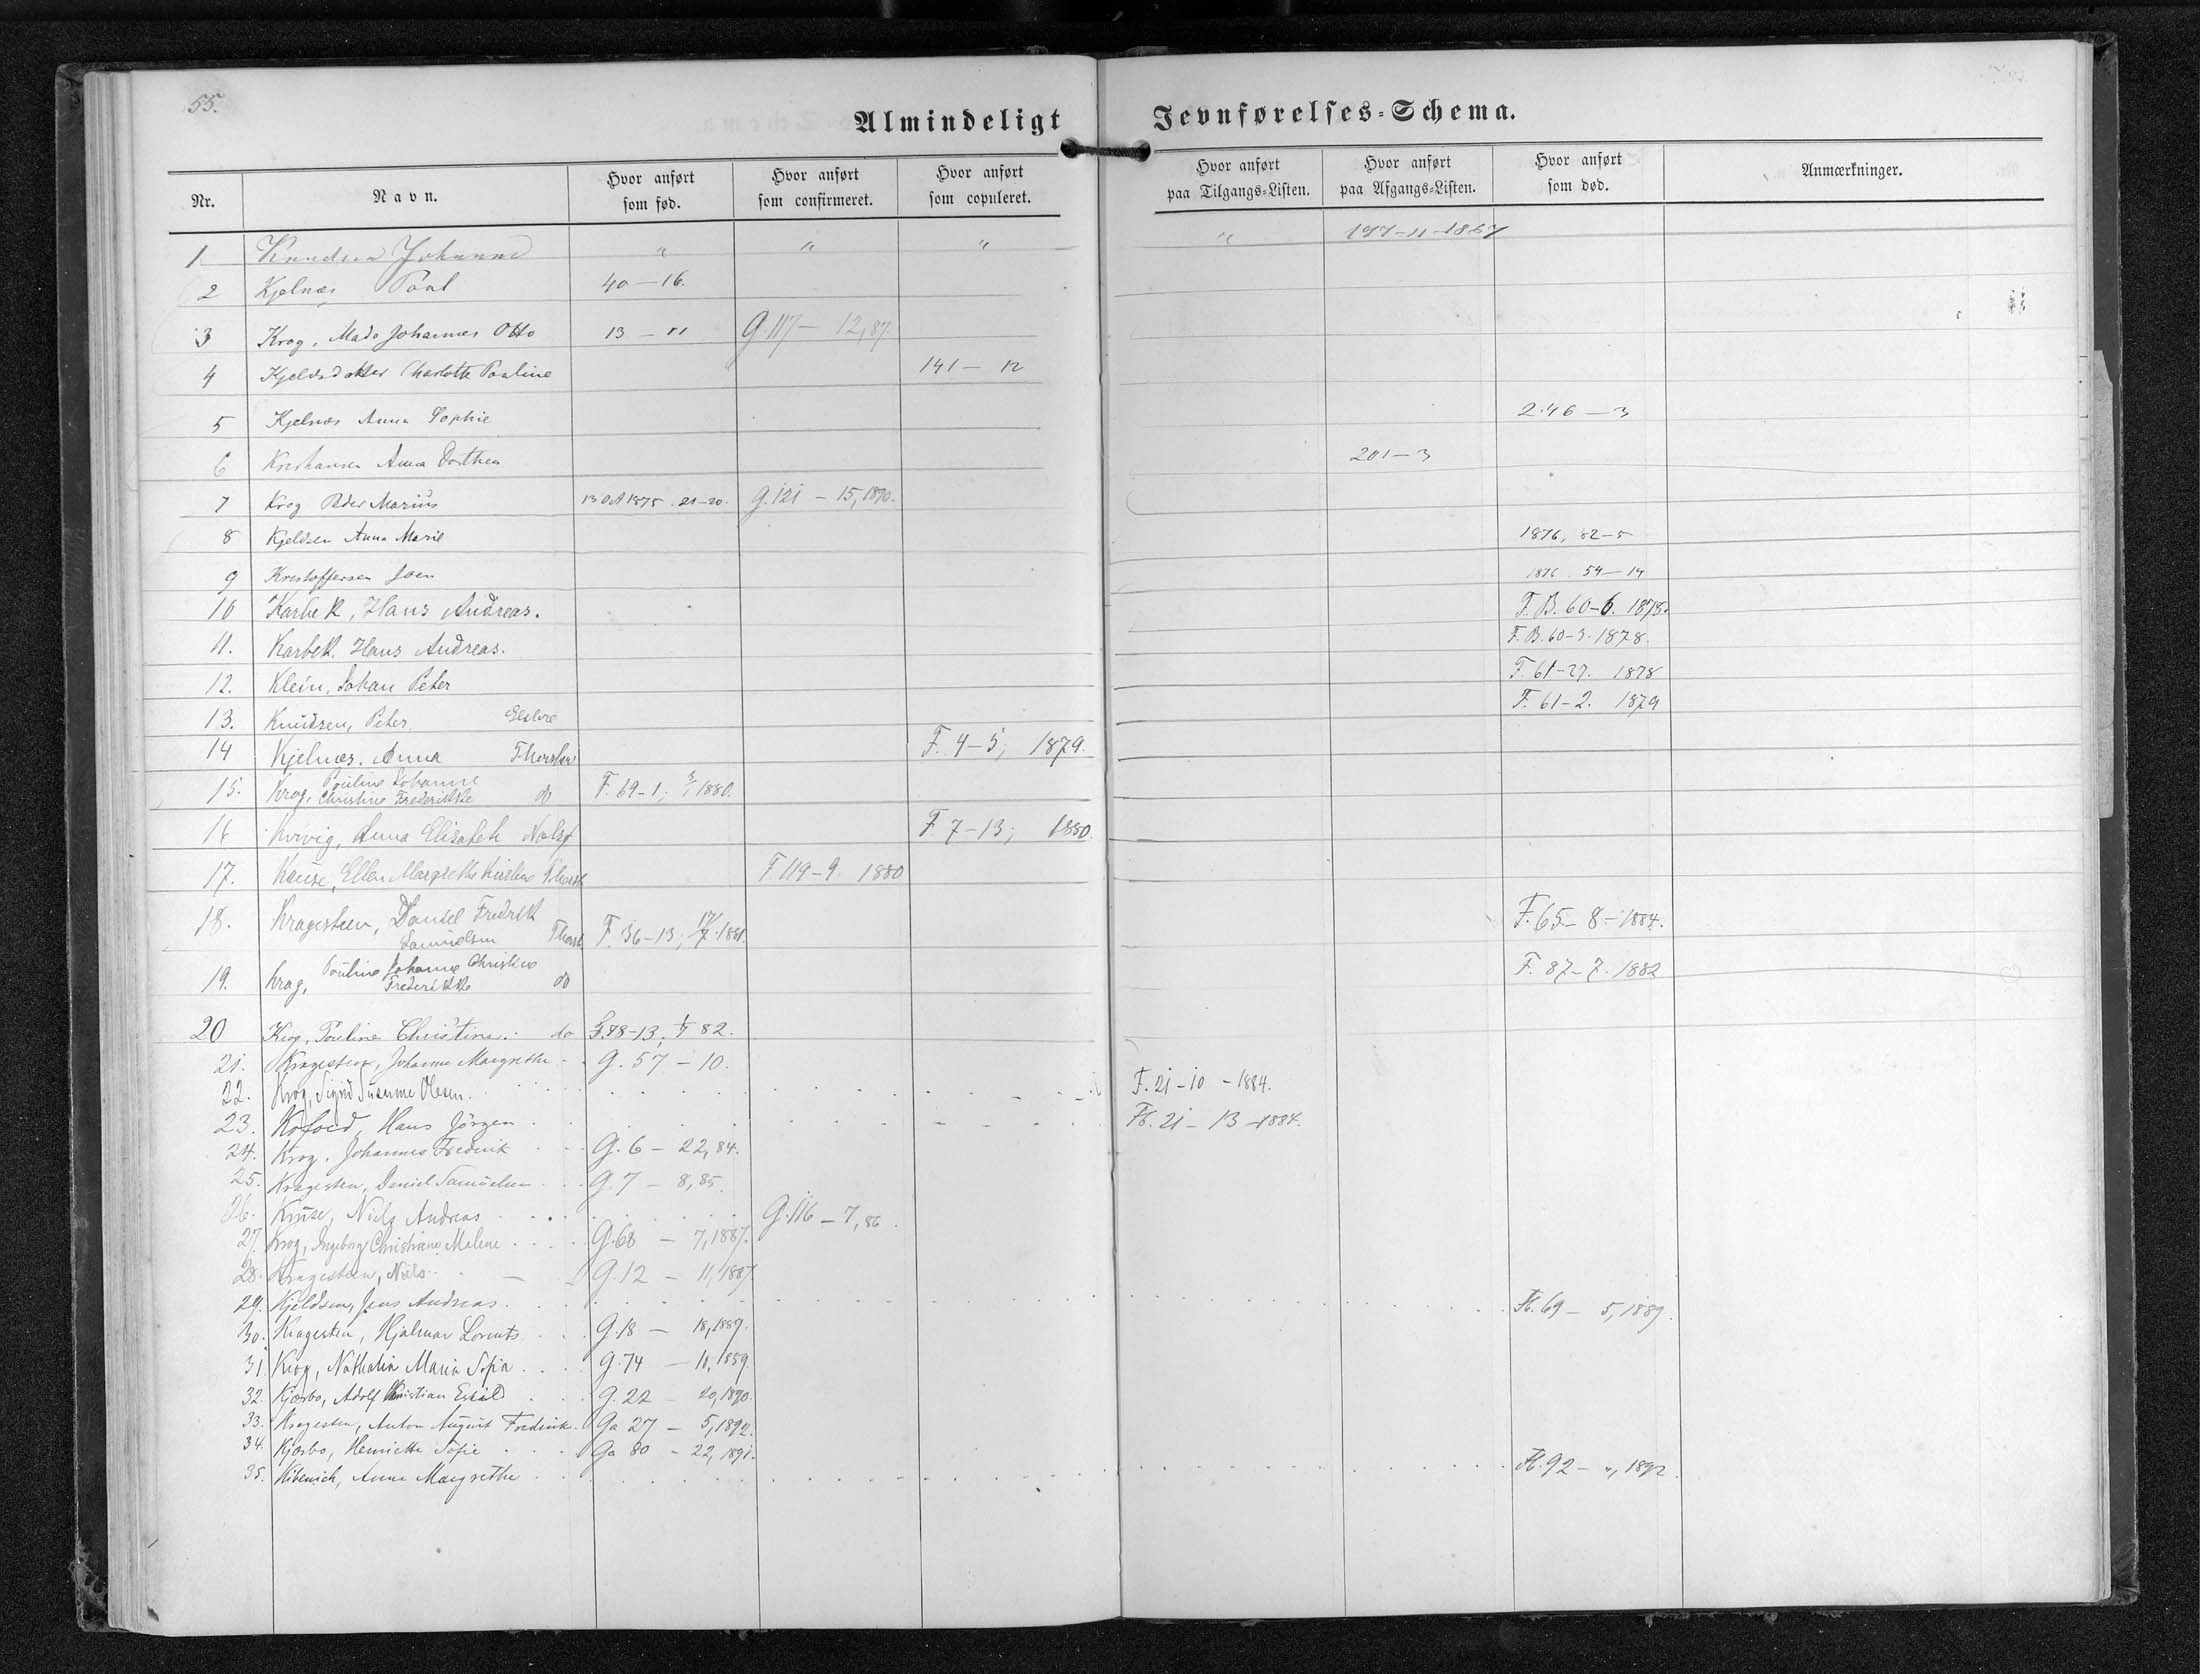 55.
Almindeligt Jevnførelses-Schema.
Nr. Navn. Hvor anført som fød. Hvor anført som confirmeret. Hvor anført som copuleret. Hvor anført paa Tilgangs-Listen. Hvor anført paa Afgangs-Listen. Hvor anført som død. Anmærkninger.
1 Knudsen Johanne " " " " 197-11-1867
2 Kjelnæs Poul 40-16.
3 Krog, Mads Johannes Otto 13-11 G. 117-12,87.
4 Kjeldsdatter Charlotte Pauline 141-12
5 Kjelnæs Anna Sophie 246-3
6 Anna Dorthea 201-3
7 Krog Peder Marius 13 Oct 1875. 21-20. G. 121-15, 1890.
8 Kjeldsen Anna Marie 1876, 82-5
9 Kristoffersen Joen 1876. 54-14
10 Karbek, Hans Andreas. F.B. 60-6. 1878.
11. Karbek. Hans Andreas. F.B. 60-3. 1878.
12. Klein, Johan Peter F. 61-27. 1878
13. Knudsen, Peter F. 61-2. 1879
14 Kjelnæs. Anna F. 4-5; 1879.
15. Krog, Pouline Johanne
Christine Frederikke do F. 69-1; 1880.
16 Anna Elisabeth F. 7-13; 1880.
17. Ellen Margrethe F. 119-9. 1880
18. Kragesteen, Daniel Fredrik
Samuelsen F. 36-13; 17/7. 1881. F. 65-8-1884.
19. Krag, Pouline Johanne Christine
Frederikke do F. 87-7. 1882
20 Krog, Pouline Christine. do 88-13; 82.
21. Kragesteen, Johanne Margrethe G. 57-10.
22. Krog, Sigrid Susanne Olesen. F. 21-10-1884.
23. Kofoed, Hans Jörgen Ft. 21-13-1884.
24. Krog. Johannes Frederik G. 6-22,84.
25. Kragesteen, Daniel Samuelsen G. 7-8,85.
26. Kruse, Niels Andreas G. 116-7,86.
27. Krog, Ingeborg Christiane Malene G. 68-7,1887.
28. Kragesteen, Niels G. 12-11,1887
29. Kjeldsen, Jens Andreas. Ft. 69-5,1889.
30. Kragesteen, Hjalmar Lorents G. 18-18,1889.
31. Krog, Nathalia Maria Sofia G. 74-10,1889.
32. Kjærbo, Adolf Christian Eskild G. 22-20,1890.
33. Kragesteen, Anton August Frederik. Ga 27-5,1892.
34. Kjærbo, Henriette Sofie Ga 80-22,1891.
35. Kibenich, Anna Margrethe Ft. 92-",1892.